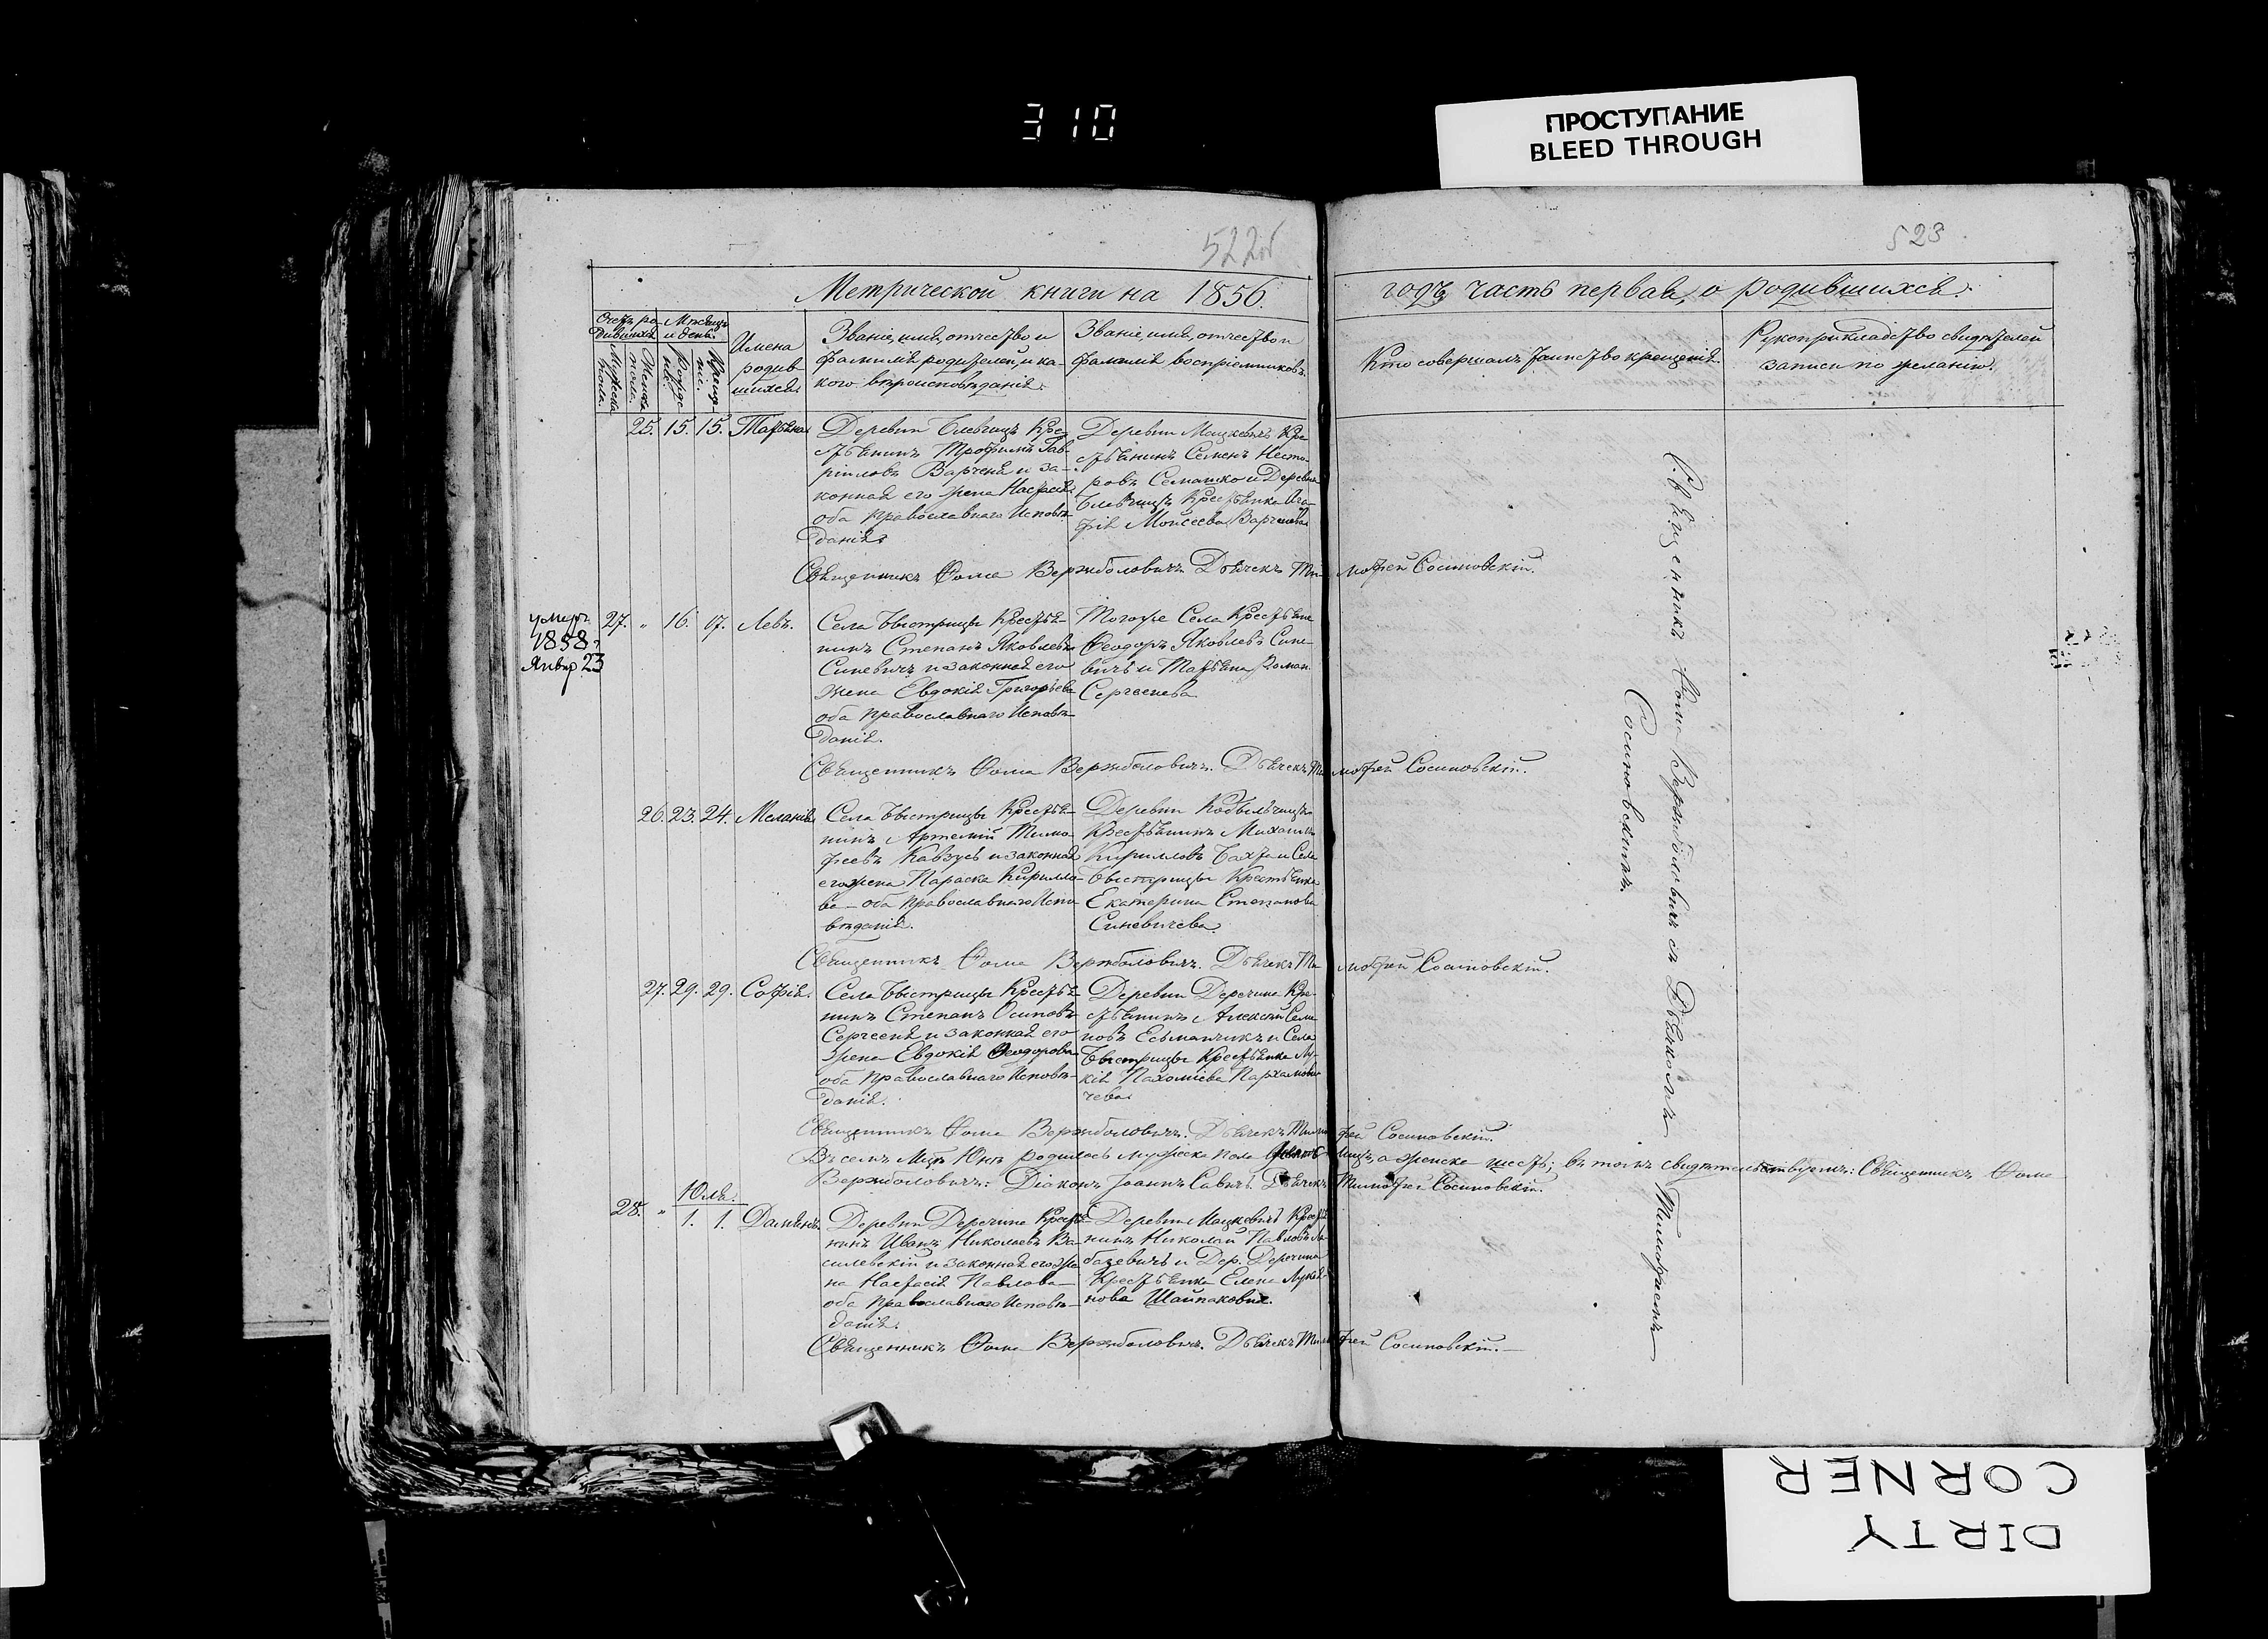 310
ПРОСТУПАНИЕ
BLEED THROUGH
522об
523
Метрической книги на 1856.
годъ часть первая, о родившихся.
Счетъ ро-
дившихся
Мѣсяцъ
и день.
Мужеска
пола.
Женска
пола.
Рожде
нія.
Креще-
нія.
Имена
родив
шихся.
Званіе, имя, отчество и
фамилія родителей, и ка-
кого вѣроисповѣданія.
Званіе, имя, отчество и
фамилія воспріемниковъ.
Кто совершалъ таинство крещенія.
Рукоприкладство свидѣтелей
записи по желанію.
25. 15. 15. Татьяна
Деревни Кре-
стьянинъ Трофимъ Гав-
ріиловъ Варченя и за-
конная его жена Настасія
оба православнаго Исповѣ-
данія.
Деревни Мацкевичъ Кре
стьянинъ Семенъ Несто-
ровъ Семашко и Деревни
Крестьянка Ага-
фія Моисеева
Священникъ Ѳома Вержболовичъ. Дьячекъ Тимофей Сосиновскій.
умеръ
1858 г
Январ 23
27. " 16. 17. Левъ.
Села Быстрицы Крестья-
нинъ Степанъ Яковлевъ
Синевичъ и законная его
жена Евдокія Григорьева
оба православнаго Исповѣ-
данія.
Тогоже Села Крестьяне
Ѳеодоръ Яковлевъ Сине-
вичъ и Татьяна Роман.
Сергеенева
Священникъ Ѳома Вержболовичъ. Дьячекъ Тимофей Сосиновскій.
26. 23. 24. Меланія
Села Быстрицы Крестья-
нинъ Артемій Тимо-
феевъ Кавзусь и законная
его жена Параска Кирилло-
ва — оба православнаго Испо
вѣданія.
Деревни
Крестьянинъ Михаилъ
Кирилловъ Бахта и Села
Быстрицы Крестьянка
Екатерина Степанова
Синевичева.
Священникъ Ѳома Вержболовичъ. Дьячекъ Тимофей Сосиновскій.
27. 29. 29. Софія.
Села Быстрицы Крестья-
нинъ Степанъ Осиповъ
Сергееня и законная его
жена Евдокія Ѳеодорова
оба православнаго Исповѣ-
данія.
Деревни Деречина Кре-
стьянинъ Алексій Семе
новъ Есьманчикъ и Села
Быстрицы Крестьянка Лу-
кія Пахоміева Пархамови
чева
Священникъ Ѳома Вержболовичъ. Дьячекъ Тимофей Сосиновскій.
Въ семъ Мцѣ Юнѣ родилось мужеска пола а женска шесть; въ томъ свидѣтельствуемъ: Священникъ Ѳома
Вержболовичъ: Діаконъ Іоаннъ Савичъ. Дьячекъ Тимофей Сосиновскій.
Юль.
28. " 1. 1. Даміянъ
Деревни Деречина Крестья
нинъ Иванъ Николаевъ Ва-
силевскій и законная его же
на Настасія Павлова —
оба православнаго Исповѣ-
данія.
Деревни Мацкевичъ Крестья
нинъ Николай Павловъ
и Дер. Деречина
Крестьянка Елена Лукья
нова Шайпаковна.
Священникъ Ѳома Вержболовичъ. Дьячекъ Тимофей Сосиновскій.
Священникъ Ѳома Вержболовичъ съ Дьячкомъ Тимофеемъ
Сосиновскимъ.
DIRTY
CORNER